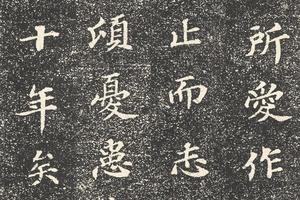 所愛作
止而志
頌憂患
十年矣